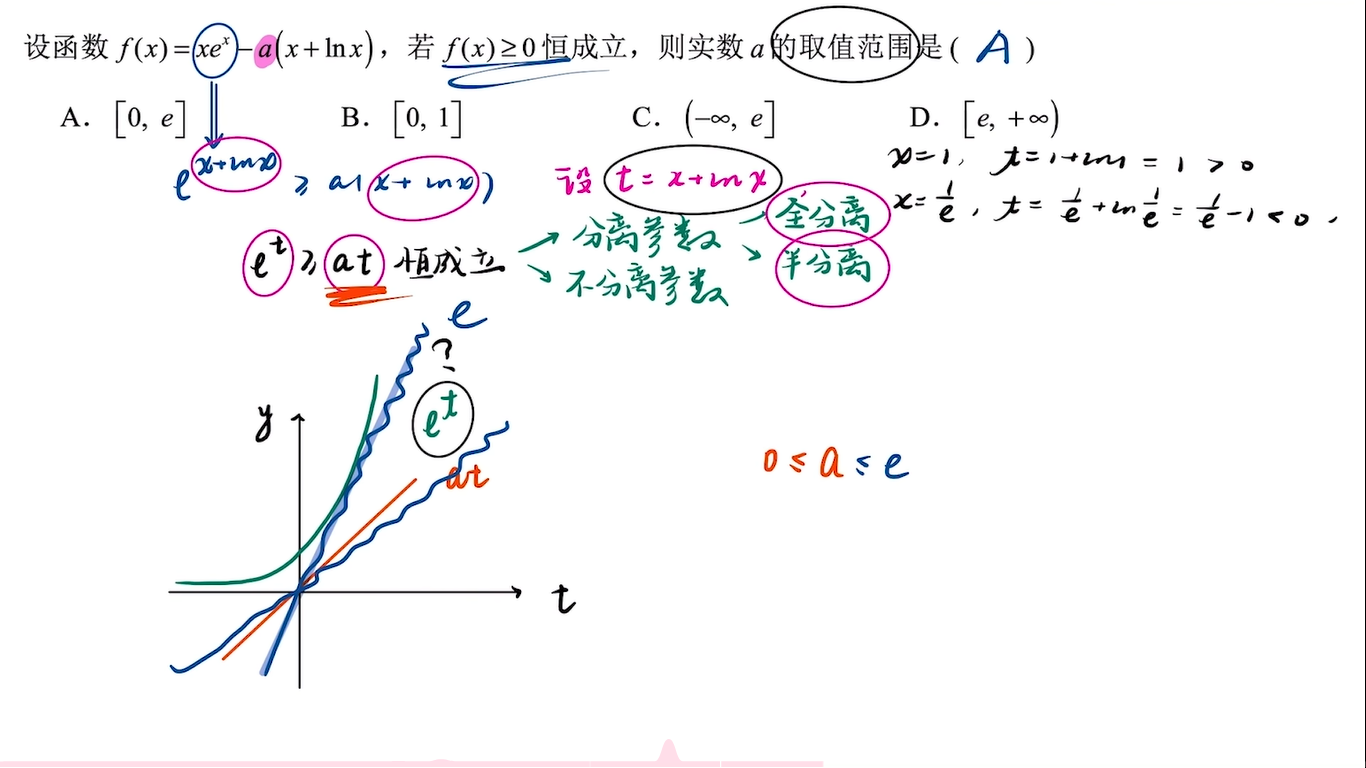 设函数 f(x)=xeˣ-a(x+lnx)，若 f(x)≥0恒成立，则实数 a 的取值范围是( A )
A. [0, e] B. [0, 1] C. (-∞, e] D. [e, +∞)
e^(x+lnx) ≥ a(x+lnx) 设 t=x+lnx
x=1, t=1+ln1=1>0
x=1/e, t=1/e+ln1/e=1/e-1<0,
e^t ≥ at 恒成立
分离参数 全分离
半分离
不分离参数
e
?
y
e^t
at
0≤a≤e
t